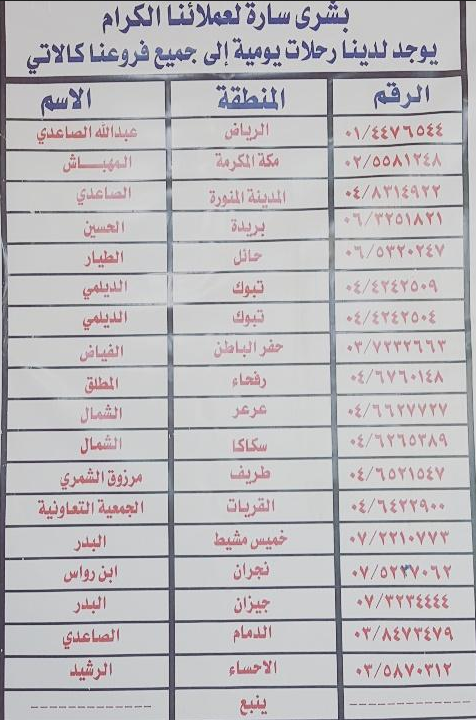 بشرى سارة لعملائنا الكرام
يوجد لدينا رحلات يومية إلى جميع فروعنا كالاتي
الرقم المنطقة الاسم
٠١/٤٤٧٦٥٤٤ الرياض عبدالله الصاعدي
٠٢/٥٥٨١٢٤٨ مكة المكرمة المهباش
٠٤/٨٣١٤٩٢٢ المدينة المنورة الصاعدي
٠٦/٣٢٥١٨٢١ بريدة الحسين
٠٦/٥٣٢٠٢٤٧ حائل الطيار
٠٤/٤٢٤٢٥٠٩ تبوك الديلمي
٠٤/٤٢٤٢٥٠٤ تبوك الديلمي
٠٣/٧٢٣٢٦٦٣ حفر الباطن الفياض
٠٤/٦٧٦٠١٤٨ رفحاء المطلق
٠٤/٦٦٢٧٧٢٧ عرعر الشمال
٠٤/٦٢٦٥٣٨٩ سكاكا الشمال
٠٤/٦٥٢١٥٤٧ طريف مرزوق الشمري
٠٤/٦٤٢٢٩٠٠ القريات الجمعية التعاونية
٠٧/٢٢١٠٧٧٣ خميس مشيط البدر
٠٧/٥٢٣٧٠٦٢ نجران ابن رواس
٠٧/٣٢٣٤٤٤٤ جيزان البدر
٠٣/٨٤٧٣٤٧٩ الدمام الصاعدي
٠٣/٥٨٧٠٣١٢ الاحساء الرشيد
ينبع